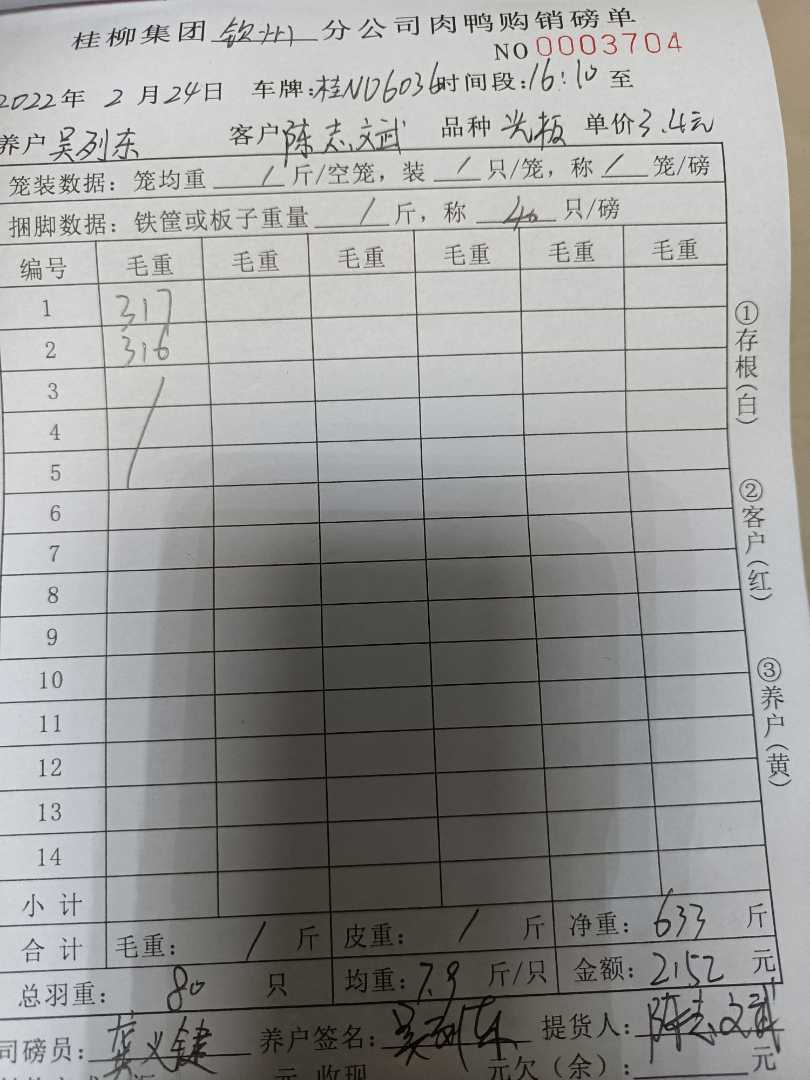 桂柳集团 钦州 分公司肉鸭购销磅单
NO 0003704
2022年 2 月 24日 车牌:桂N06036 时间段:16:10 至
养户 吴列东 客户 陈志文武 品种 光板 单价 3.4元
笼装数据：笼均重 / 斤/空笼，装 / 只/笼，称 / 笼/磅
捆脚数据：铁筐或板子重量 / 斤，称 40 只/磅
编号 毛重 毛重 毛重 毛重 毛重 毛重
1 317
2 316
3
4
5
6
7
8
9
10
11
12
13
14
小 计
合 计 毛重： / 斤 皮重： / 斤 净重：633 斤
总羽重： 80 只 均重：7.9 斤/只 金额：2152 元
司磅员： 义键 养户签名：吴列东 提货人：陈志文武
元 收现 元欠（余）： 元
①存根(白)
②客户(红)
③养户(黄)